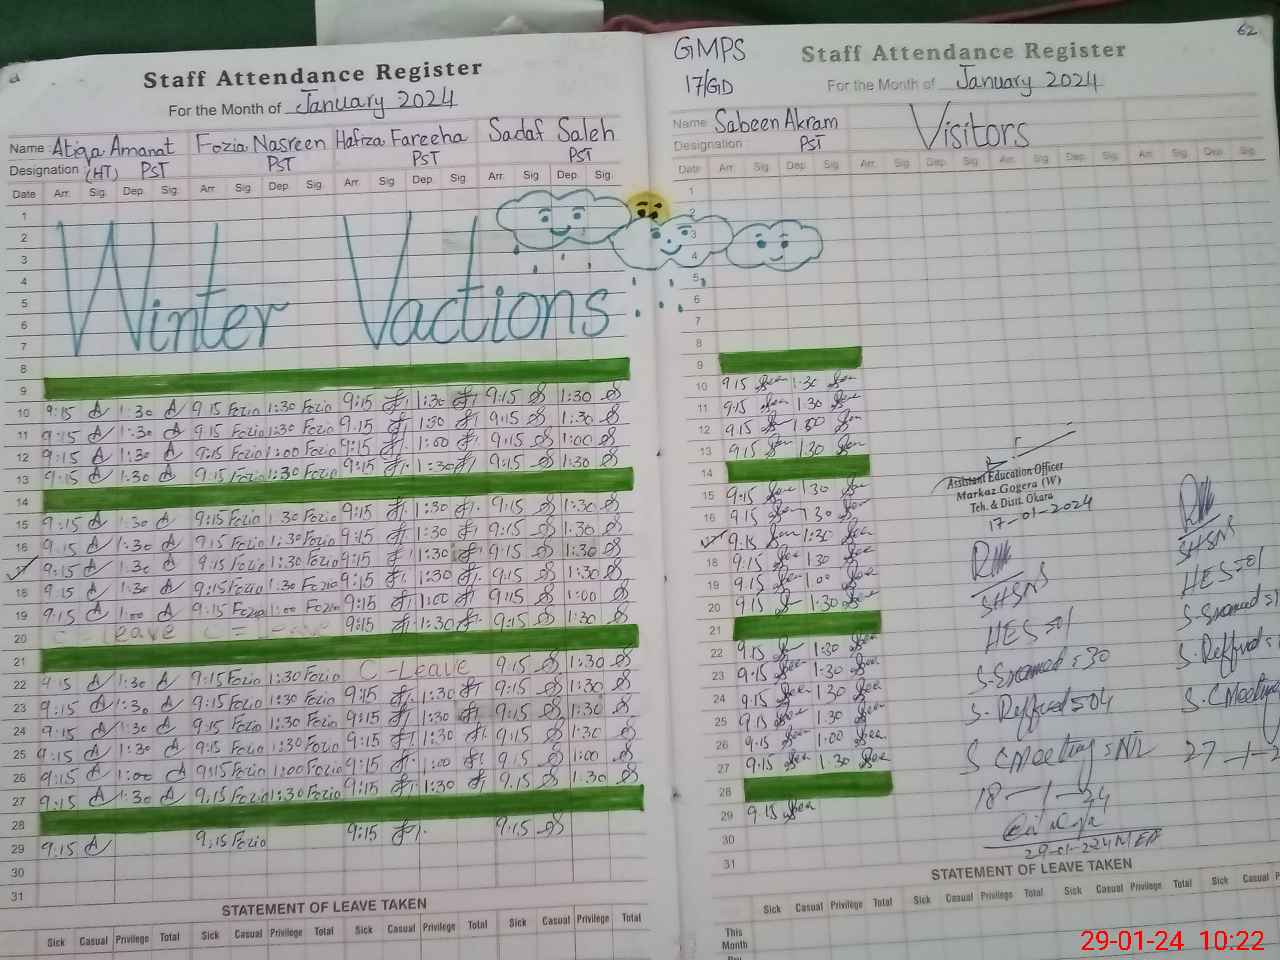 Staff Attendance Register
For the Month of January 2024
Name Atiqa Amanat Fozia Nasreen Hafiza Fareeha Sadaf Saleh
Designation (HT) PST PST PST PST
Date Arr. Sig. Dep. Sig. Arr. Sig. Dep. Sig. Arr. Sig. Dep. Sig. Arr. Sig. Dep. Sig.
1
2
3
4
5
6
7
Winter Vactions
8
9
10 9:15 A 1:30 A 9:15 Fozia 1:30 Fozia 9:15 1:30 9:15 1:30
11 9:15 A 1:30 A 9:15 Fozia 1:30 Fozia 9:15 1:30 9:15 1:30
12 9:15 A 1:30 A 9:15 Fozia 1:00 Fozia 9:15 1:00 9:15 1:00
13 9:15 A 1:30 A 9:15 Fozia 1:30 Fozia 9:15 1:30 9:15 1:30
14
15 9:15 A 1:30 A 9:15 Fozia 1:30 Fozia 9:15 1:30 9:15 1:30
16 9:15 A 1:30 A 9:15 Fozia 1:30 Fozia 9:15 1:30 9:15 1:30
17 9:15 A 1:30 A 9:15 Fozia 1:30 Fozia 9:15 1:30 9:15 1:30
18 9:15 A 1:30 A 9:15 Fozia 1:30 Fozia 9:15 1:30 9:15 1:30
19 9:15 A 1:00 A 9:15 Fozia 1:00 Fozia 9:15 1:00 9:15 1:00
20 C-Leave C-Leave 9:15 1:30 9:15 1:30
21
22 9:15 A 1:30 A 9:15 Fozia 1:30 Fozia C-Leave 9:15 1:30
23 9:15 A 1:30 A 9:15 Fozia 1:30 Fozia 9:15 1:30 9:15 1:30
24 9:15 A 1:30 A 9:15 Fozia 1:30 Fozia 9:15 1:30 9:15 1:30
25 9:15 A 1:30 A 9:15 Fozia 1:30 Fozia 9:15 1:30 9:15 1:30
26 9:15 A 1:00 A 9:15 Fozia 1:00 Fozia 9:15 1:00 9:15 1:00
27 9:15 A 1:30 A 9:15 Fozia 1:30 Fozia 9:15 1:30 9:15 1:30
28
29 9:15 A 9:15 Fozia 9:15 9:15
30
31
STATEMENT OF LEAVE TAKEN
Sick Casual Privilege Total Sick Casual Privilege Total Sick Casual Privilege Total Sick Casual Privilege Total
62
GMPS
17/GD
Staff Attendance Register
For the Month of January 2024
Name Sabeen Akram Visitors
Designation PST
Date Arr. Sig. Dep. Sig. Arr. Sig. Dep. Sig. Arr. Sig. Dep. Sig. Arr. Sig. Dep. Sig.
1
2
3
4
5
6
7
8
9
10 9:15 1:30
11 9:15 1:30
12 9:15 1:00
13 9:15 1:30
14
15 9:15 1:30
16 9:15 1:30
9:15 1:30
18 9:15 1:30
19 9:15 1:00
20 9:15 1:30
21
22 9:15 1:30
23 9:15 1:30
24 9:15 1:30
25 9:15 1:30
26 9:15 1:00
27 9:15 1:30
28
29 9:15
30
31
Assistant Education Officer
Markaz Gogera (W)
Teh. & Distt. Okara
17-01-2024
SHSNS
HES=01
S-Examed=30
S-Reffred=04
S C Meeting=NIL
18-1-24
SHSNS
HES=01
S-Examed=
S-Reffred=
S-C Meeting
27-1-2
STATEMENT OF LEAVE TAKEN
Sick Casual Privilege Total Sick Casual Privilege Total Sick Casual
This
Month
29-01-24 10:22